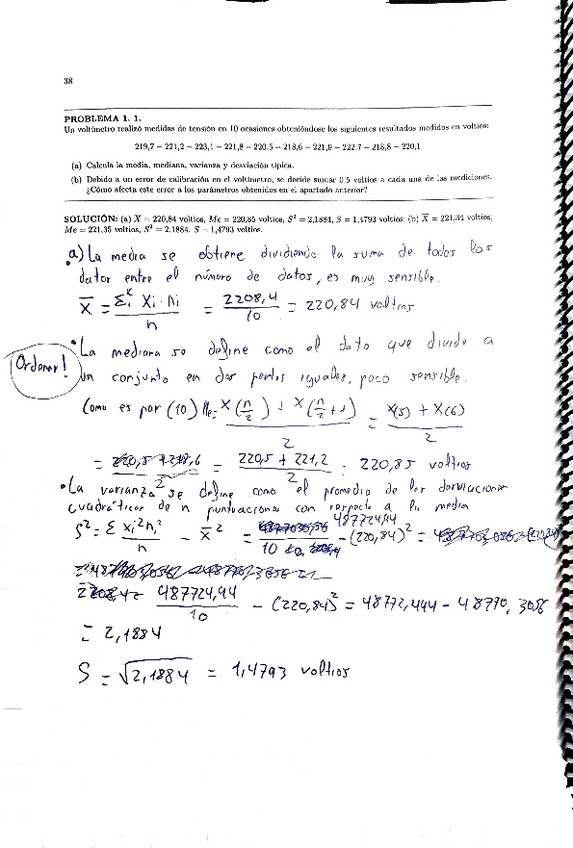 38
PROBLEMA 1. 1.
Un voltímetro realizó medidas de tensión en 10 ocasiones obteniéndose los siguientes resultados medidos en voltios:
219,7 – 221,2 – 223,1 – 221,8 – 220,5 – 218,6 – 221,9 – 222,7 – 218,8 – 220,1
(a) Calcula la media, mediana, varianza y desviación típica.
(b) Debido a un error de calibración en el voltímetro, se decide sumar 0.5 voltios a cada una de las mediciones.
¿Cómo afecta este error a los parámetros obtenidos en el apartado anterior?
SOLUCIÓN: (a) X̄ = 220,84 voltios, Me = 220,85 voltios, S² = 2,1884, S = 1,4793 voltios; (b) X̄ = 221,34 voltios,
Me = 221,35 voltios, S² = 2,1884, S = 1,4793 voltios.
a) La media se obtiene dividiendo la suma de todos los
dator entre el número de datos, es muy sensible.
X̄ = Σᵢᴷ Xi · ni / n = 2208,4 / 10 = 220,84 voltios
Ordenar!
• La mediana se define como el dato que divide a
un conjunto en dos partes iguales, poco sensible.
Como es par (10) Me = X(n/2) + X(n/2 + 1) / 2 = X(5) + X(6) / 2
= 220,5 + 221,2 / 2 = 220,85 voltios
• La varianza se define como el promedio de las desviaciones
cuadráticas de n puntuaciones con respecto a la media
S² = Σ xi² ni / n - X̄² = 487724,44 / 10 - (220,84)² =
= 487724,44 / 10 - (220,84)² = 48772,444 - 48770,3056
= 2,1884
S = √2,1884 = 1,4793 voltios